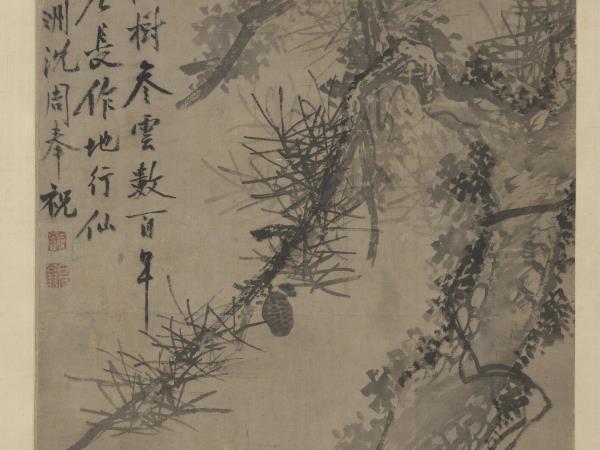 樹參雲數百年
長作地行仙
洲沈周奉祝